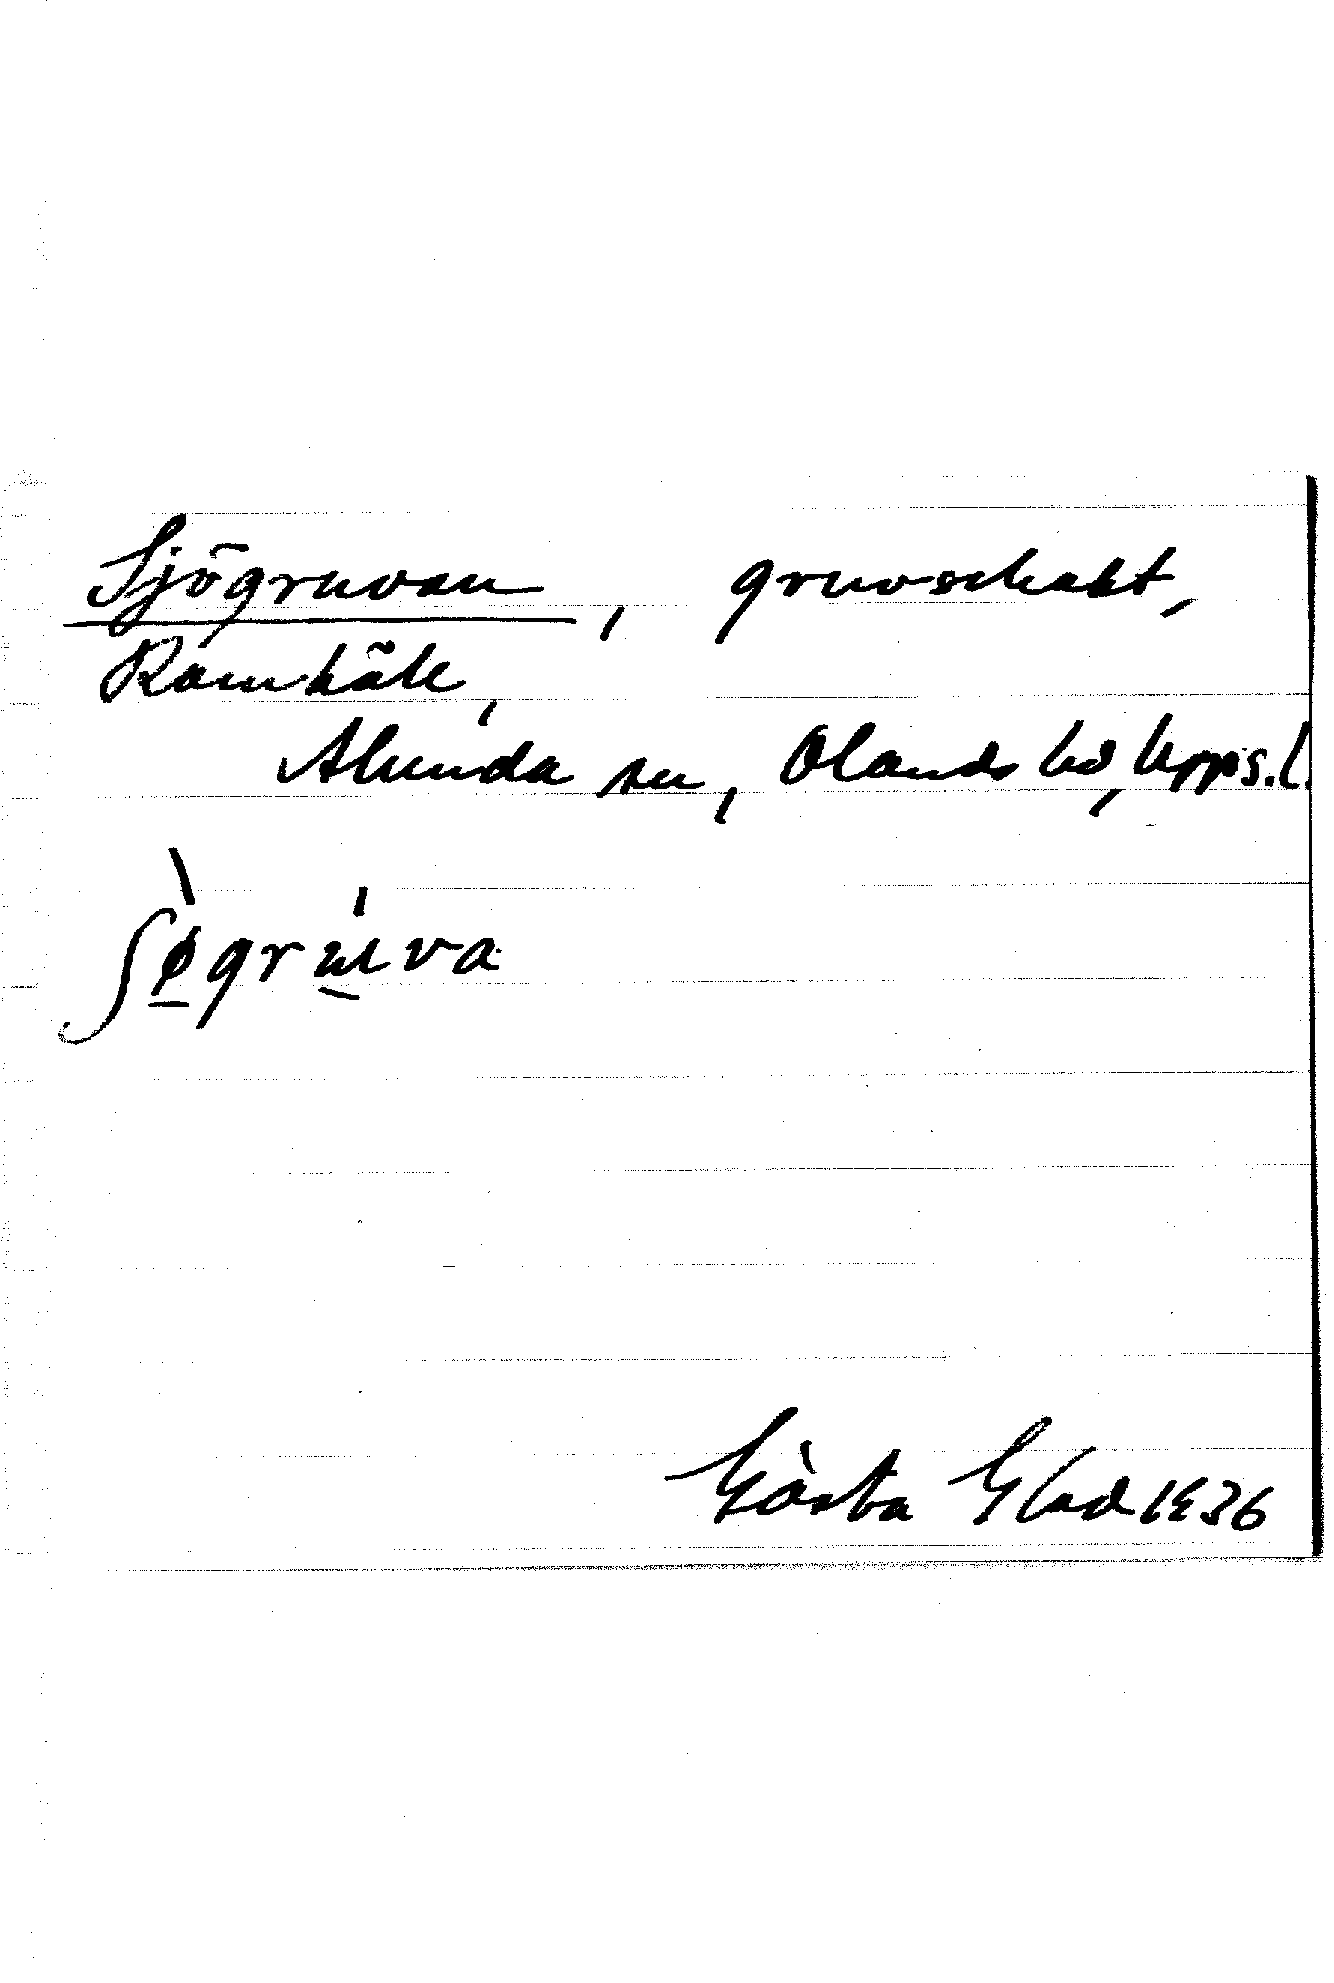 Sjögruvan, gruvschakt,
Ramhäll,
Alunda sn, Olands hd, Upps.l.
ʃø̀grʉ́va
Gösta Glad 1936